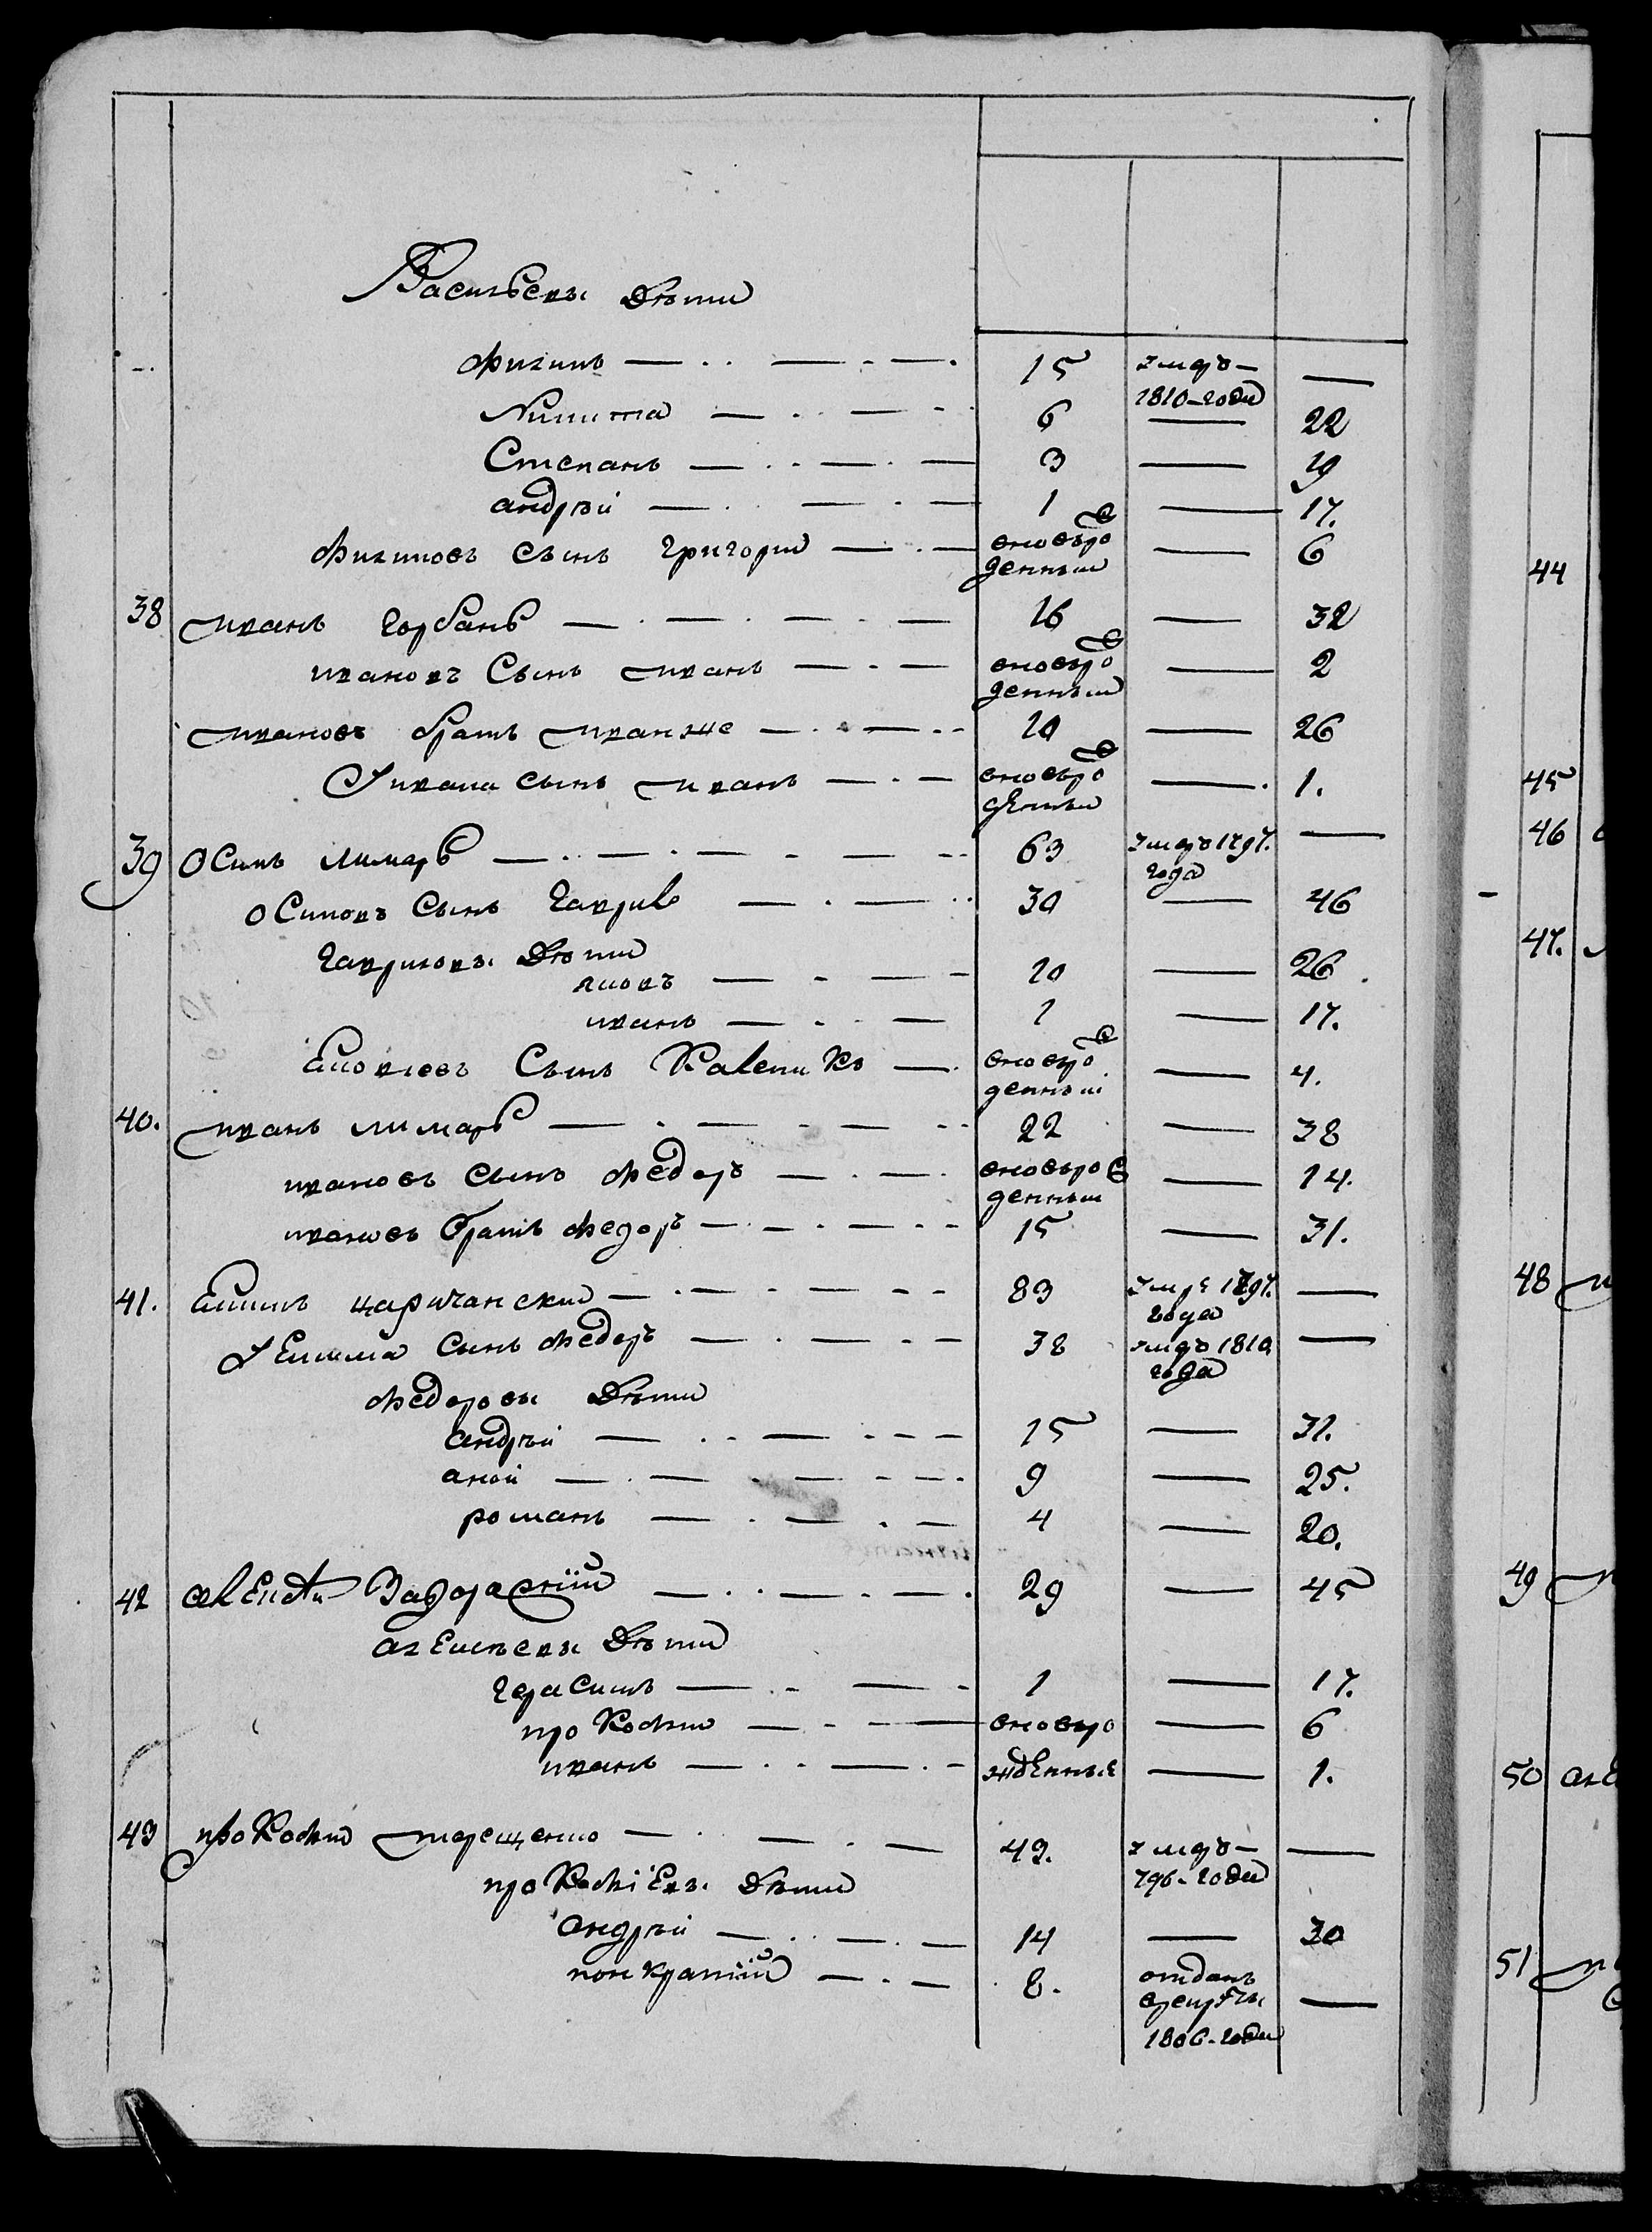 Васильевы Дѣти
Филипъ 15 умеръ 1810 году —
Никита 6 — 22
Степанъ 3 — 19
андрѣй 1 — 17.
Филиповъ Сынъ григорий вновьрожденный — 6
38 иванъ горбань 16 — 32
ивановъ Сынъ иванъ вновьрожденный — 2
ивановъ братъ иванже 10 — 26
У ивана сынъ иванъ вновьрожденный — 1.
39 Осипъ лимарь 63 умеръ 1797. года —
Осиповъ Сынъ гаврило 30 — 46
гавриловы Дѣти
яковъ 10 — 26
иванъ 1 — 17.
Сынъ Каленикъ вновьрожденный — 4.
40. иванъ лимарь 22 — 38
ивановъ сынъ федоръ вновьрожденный — 14.
ивановъ братъ федоръ 15 — 31.
41. Ефимъ царичанский 83 умеръ 1797. года —
У Ефима Сынъ федоръ 38 умеръ 1810 года —
федоровы Дѣти
андрѣй 15 — 31.
9 — 25.
романъ 4 — 20.
42 алексѣй 29 — 45
алексѣевы Дѣти
герасимъ 1 — 17.
прокофий вновьро — 6
иванъ жденные — 1.
43 прокофий терещенко 49. умеръ 796 году —
прокофіевы Дѣти
андрѣй 14 — 30
понкратий 8. отданъ врекруты 1806 году —
44
45
46
47.
48
49
50
51